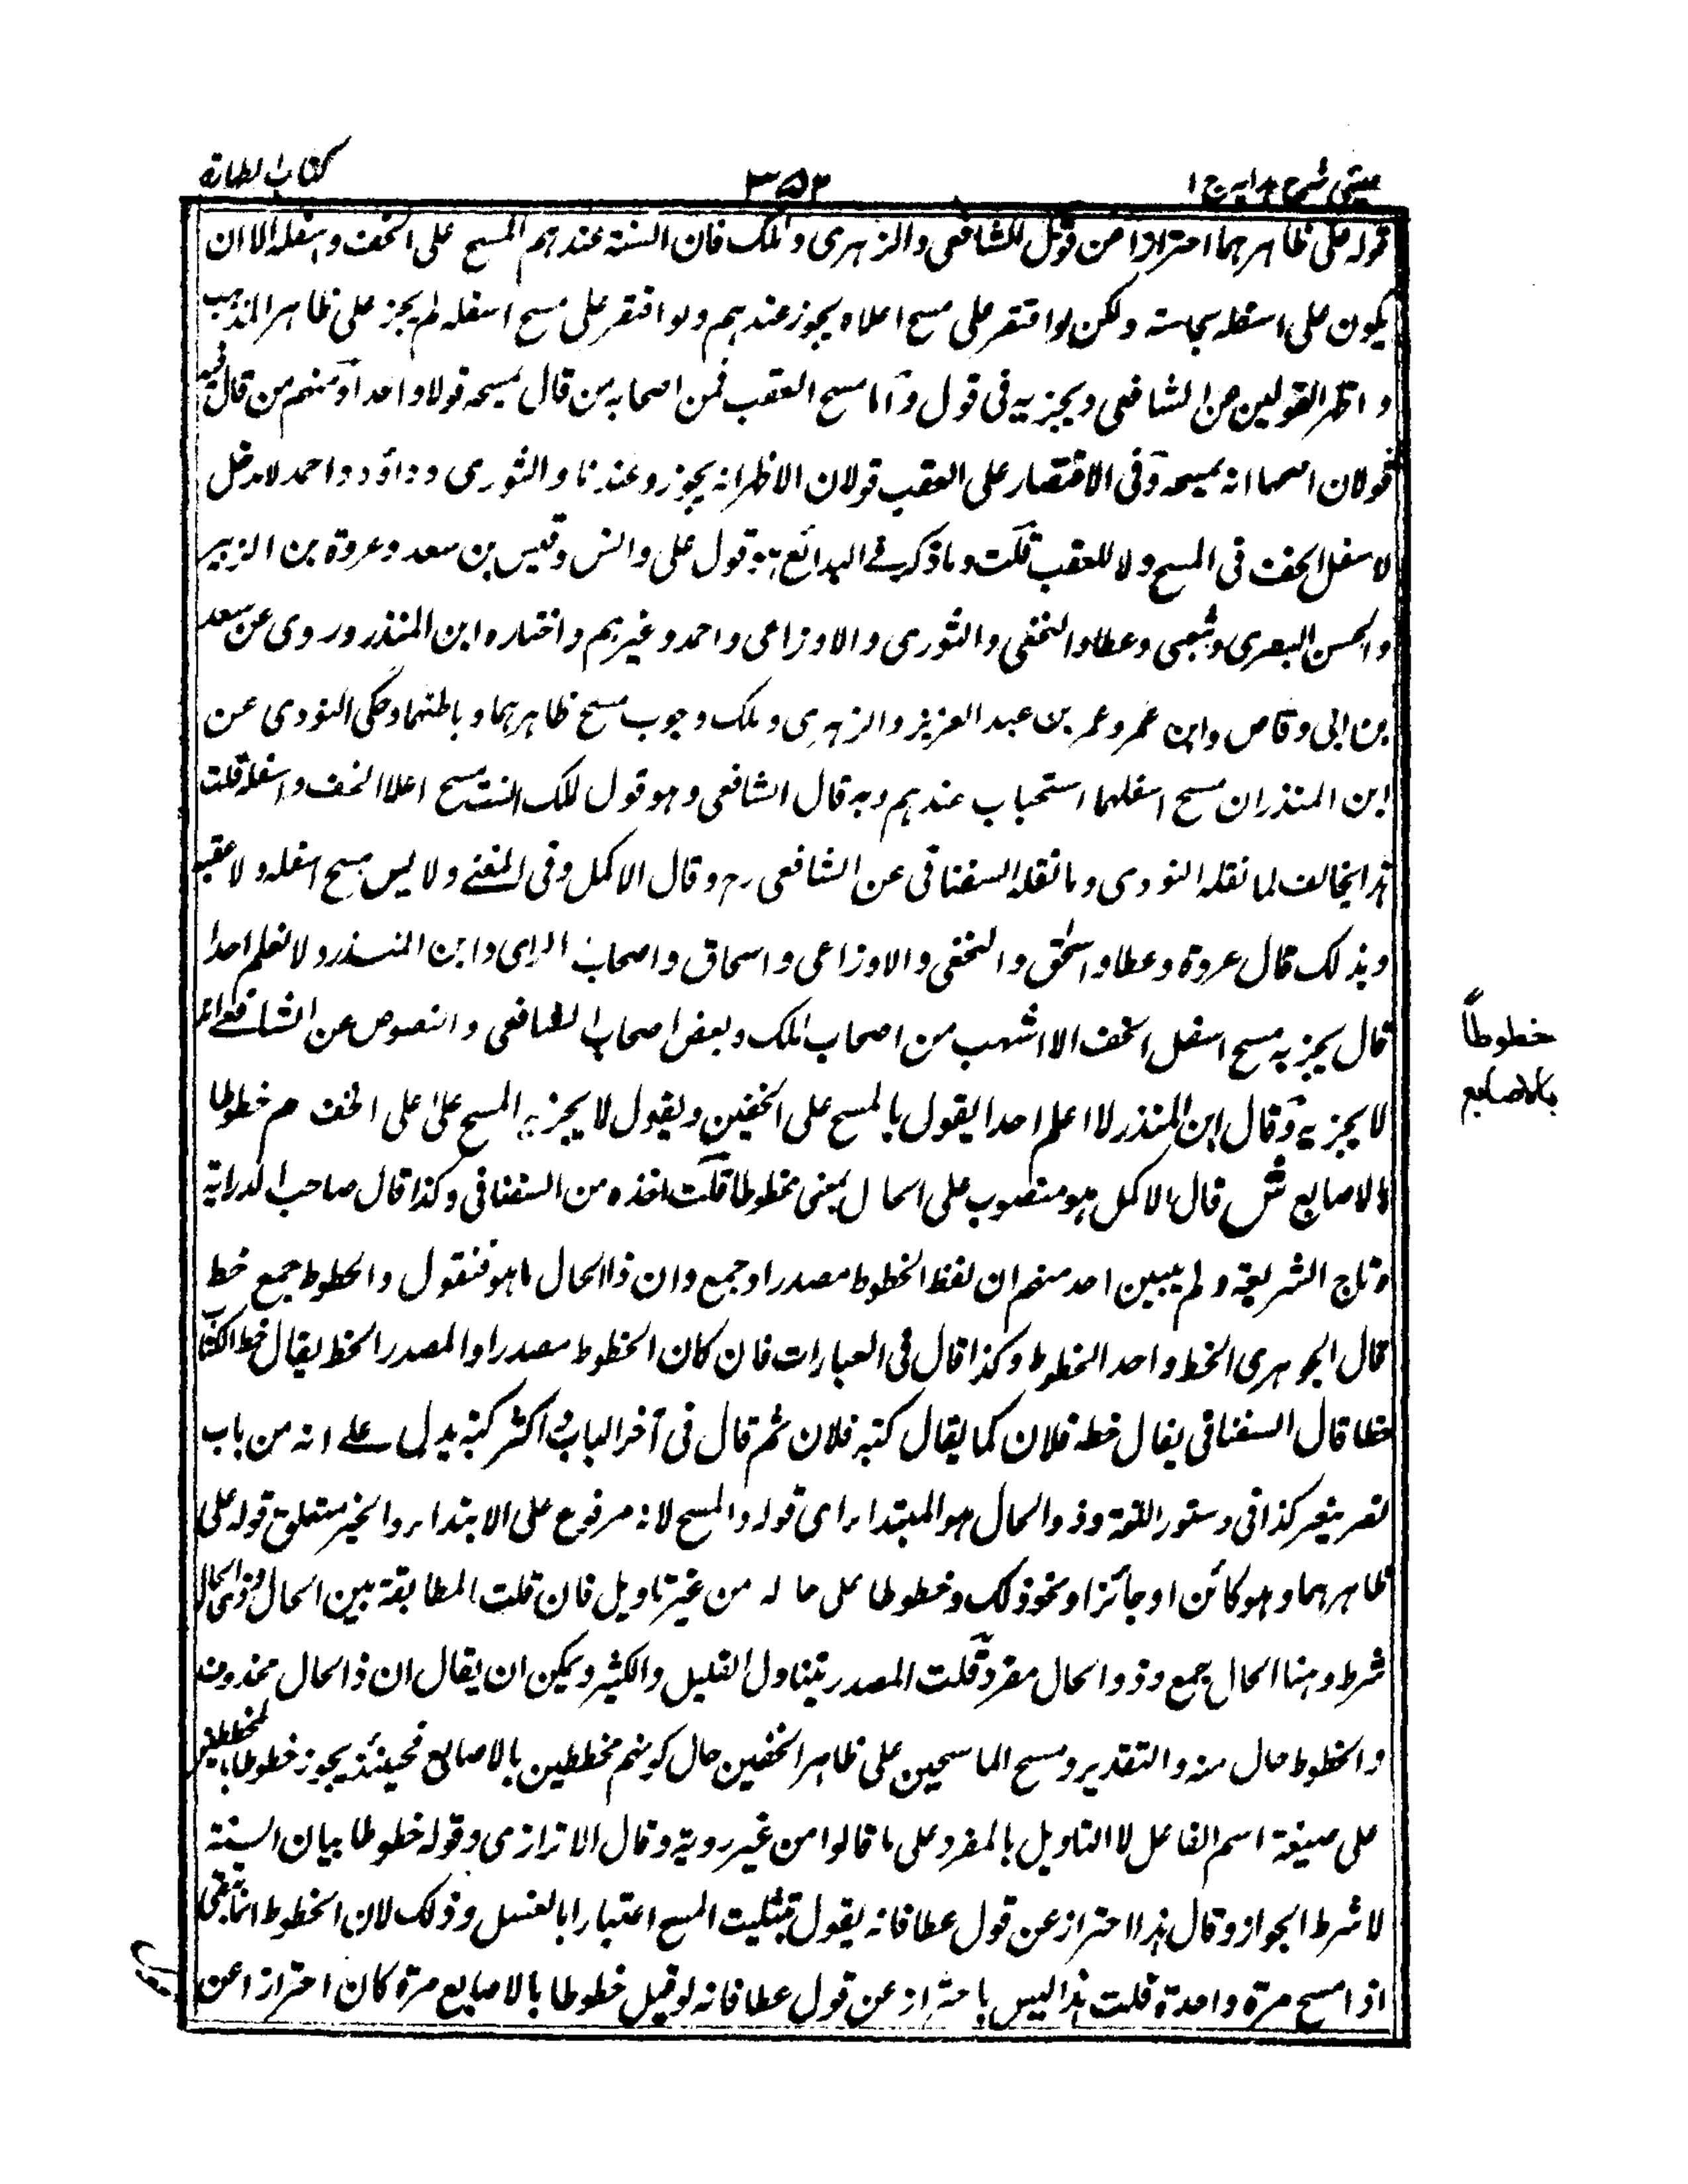 عینی شرح ہدایہ ج ۱
۳۵۲
کتاب الطہارة
قوله على ظاهرهما احترازا من قول الشافعي والزهري ومالك فان السنة عندهم المسح على الخف واسفله الا ان
يكون على اسفله نجاسة ولكن لو اقتصر على مسح اعلاه يجوز عندهم ولو اقتصر على مسح اسفله لم يجز على ظاهر المذهب
و اظهر القولين من الشافعي ويجزيه فى قول وأما مسح العقب فمن اصحابه من قال يمسحه قولا واحدا ومنهم من قال فيه
قولان اصحها انه يمسحه وفى الاقتصار على العقب قولان الاظهر انه يجوز وعندنا والثورى وداؤد واحمد لا مدخل
لاسفل الخف فى المسح ولا للعقب قلت وما ذكر فے البدائع هو قول على وانس وقيس بن سعد وعروة بن الزبير
والحسن البصرى وشعبى وعطا والنخعى والثورى والاوزاعى واحمد وغيرهم واختاره ابن المنذر وروى عن سعد
بن ابى وقاص وابن عمر وعمر بن عبد العزيز والزهرى وملك وجوب مسح ظاهرهما وباطنهما وحكى النووى عن
ابن المنذر ان مسح اسفلهما استحباب عندهم وبه قال الشافعى وهو قول لملك السنة مسح اعلا الخف واسفله قلت
هذا يخالف لما نقله النووى وما نقله السغناقى عن الشافعى رح وقال الاكمل وفى المغنے ولا ليس مسح اسفله ولا عقبه
وبذلك قال عروة وعطا واسحٰق والنخعى والاوزاعى واسحاق واصحاب الراى وابن المنذر ولا نعلم احدا
قال يجزيه مسح اسفل الخف الا اشهب من اصحاب ملك وبعض اصحاب الشافعى والنصوص عن الشافعے انه
لا يجزيه وقال ابن المنذر لا اعلم احدا يقول بالمسح على الخفين ويقول لا يجزيه المسح على اعلى الخف م خطوطا
بالاصابع ش قال الاكمل هو منصوب على الحال بمعنى مخطوطا قلت اخذه من السغناقى وكذا قال صاحب الدراية
وتاج الشريعة ولم يبين احد منهم ان لفظ الخطوط مصدر او جمع وان ذا الحال ما هو فنقول والخطوط جمع خط
قال الجوهرى الخط واحد الخطوط وكذا قال فى العبارات فان كان الخطوط مصدرا والمصدر الخط يقال خط الكتاب
خطا قال السغناقى يقال خطه فلان كما يقال كتبه فلان ثم قال فى آخر الباب اكثر كتبه يدل علے انه من باب
نصر ينصر كذا فى دستور اللغة وذو الحال هو المبتداء اى قوله والمسح لانه مرفوع على الابتداء والخبر متعلق قوله على
ظاهرهما وهو كائن او جائز او نحو ذلك وخطوطا على حاله من غير تاويل فان قلت المطابقة بين الحال وذى الحال
شرط وهنا الحال جمع وذو الحال مفرد قلت المصدر يتناول القليل والكثير ويمكن ان يقال ان ذا الحال محذوف
والخطوط حال منه والتقدير ومسح الماسحين على ظاهر الخفين حال كونهم مخططين بالاصابع فحينئذ يجوز خطوطا بالمخططين
على صيغة اسم الفاعل لا التاويل بالمفرد على ما قالوا من غير روية وقال الاترازى وقوله خطوطا بيان السنة
لا شرط الجواز وقال هذا احتراز عن قول عطا فانه يقول بتثليث المسح اعتبارا بالغسل وذلك لان الخطوط انما تبقى
اذا مسح مرة واحدة قلت هذا ليس باحتراز عن قول عطا فانه لو قيل خطوطا بالاصابع مرة كان احترازا عن
خطوطاً
بالاصابع